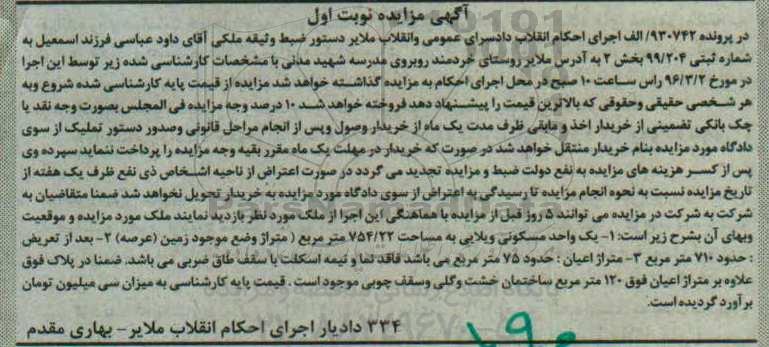 آگهی مزایده نوبت اول
در پرونده ۹۳۰۷۴۲/ الف اجرای احکام انقلاب دادسرای عمومی وانقلاب ملایر دستور ضبط وثیقه ملکی آقای داود عباسی فرزند اسمعیل به
شماره ثبتی ۹۹/۲۰۴ بخش ۲ به آدرس ملایر روستای خردمند روبروی مدرسه شهید مدنی با مشخصات کارشناسی شده زیر توسط این اجرا
در مورخ ۹۶/۳/۲ راس ساعت ۱۰ صبح در محل اجرای احکام به مزایده گذاشته خواهد شد مزایده از قیمت پایه کارشناسی شده شروع وبه
هر شخصی حقیقی وحقوقی که بالاترین قیمت را پیشنهاد دهد فروخته خواهد شد ۱۰ درصد وجه مزایده فی المجلس بصورت وجه نقد یا
چک بانکی تضمینی از خریدار اخذ و مابقی ظرف مدت یک ماه از خریدار وصول وپس از انجام مراحل قانونی وصدور دستور تملیک از سوی
دادگاه مورد مزایده بنام خریدار منتقل خواهد شد در صورت که خریدار در مهلت یک ماه مقرر بقیه وجه مزایده را پرداخت ننماید سپرده وی
پس از کسر هزینه های مزایده به نفع دولت ضبط و مزایده تجدید می گردد در صورت اعتراض از ناحیه اشخاص ذی نفع ظرف یک هفته از
تاریخ مزایده نسبت به نحوه انجام مزایده تا رسیدگی به اعتراض از سوی دادگاه مورد مزایده به خریدار تحویل نخواهد شد ضمنا متقاضیان به
شرکت به شرکت در مزایده می توانند ۵ روز قبل از مزایده با هماهنگی این اجرا از ملک مورد نظر بازدید نمایند ملک مورد مزایده و موقعیت
وبهای آن بشرح زیر است: ۱- یک واحد مسکونی ویلایی به مساحت ۷۵۴/۲۲ متر مربع ( متراژ وضع موجود زمین (عرصه) ۲- بعد از تعریض
: حدود ۷۱۰ متر مربع ۳- متراژ اعیان : حدود ۷۵ متر مربع می باشد فاقد نما و نیمه اسکلت با سقف طاق ضربی می باشد. ضمنا در پلاک فوق
علاوه بر متراژ اعیان فوق ۱۲۰ متر مربع ساختمان خشت وگلی وسقف چوبی موجود است . قیمت پایه کارشناسی به میزان سی میلیون تومان
برآورد گردیده است.
۳۳۴ دادیار اجرای احکام انقلاب ملایر- بهاری مقدم